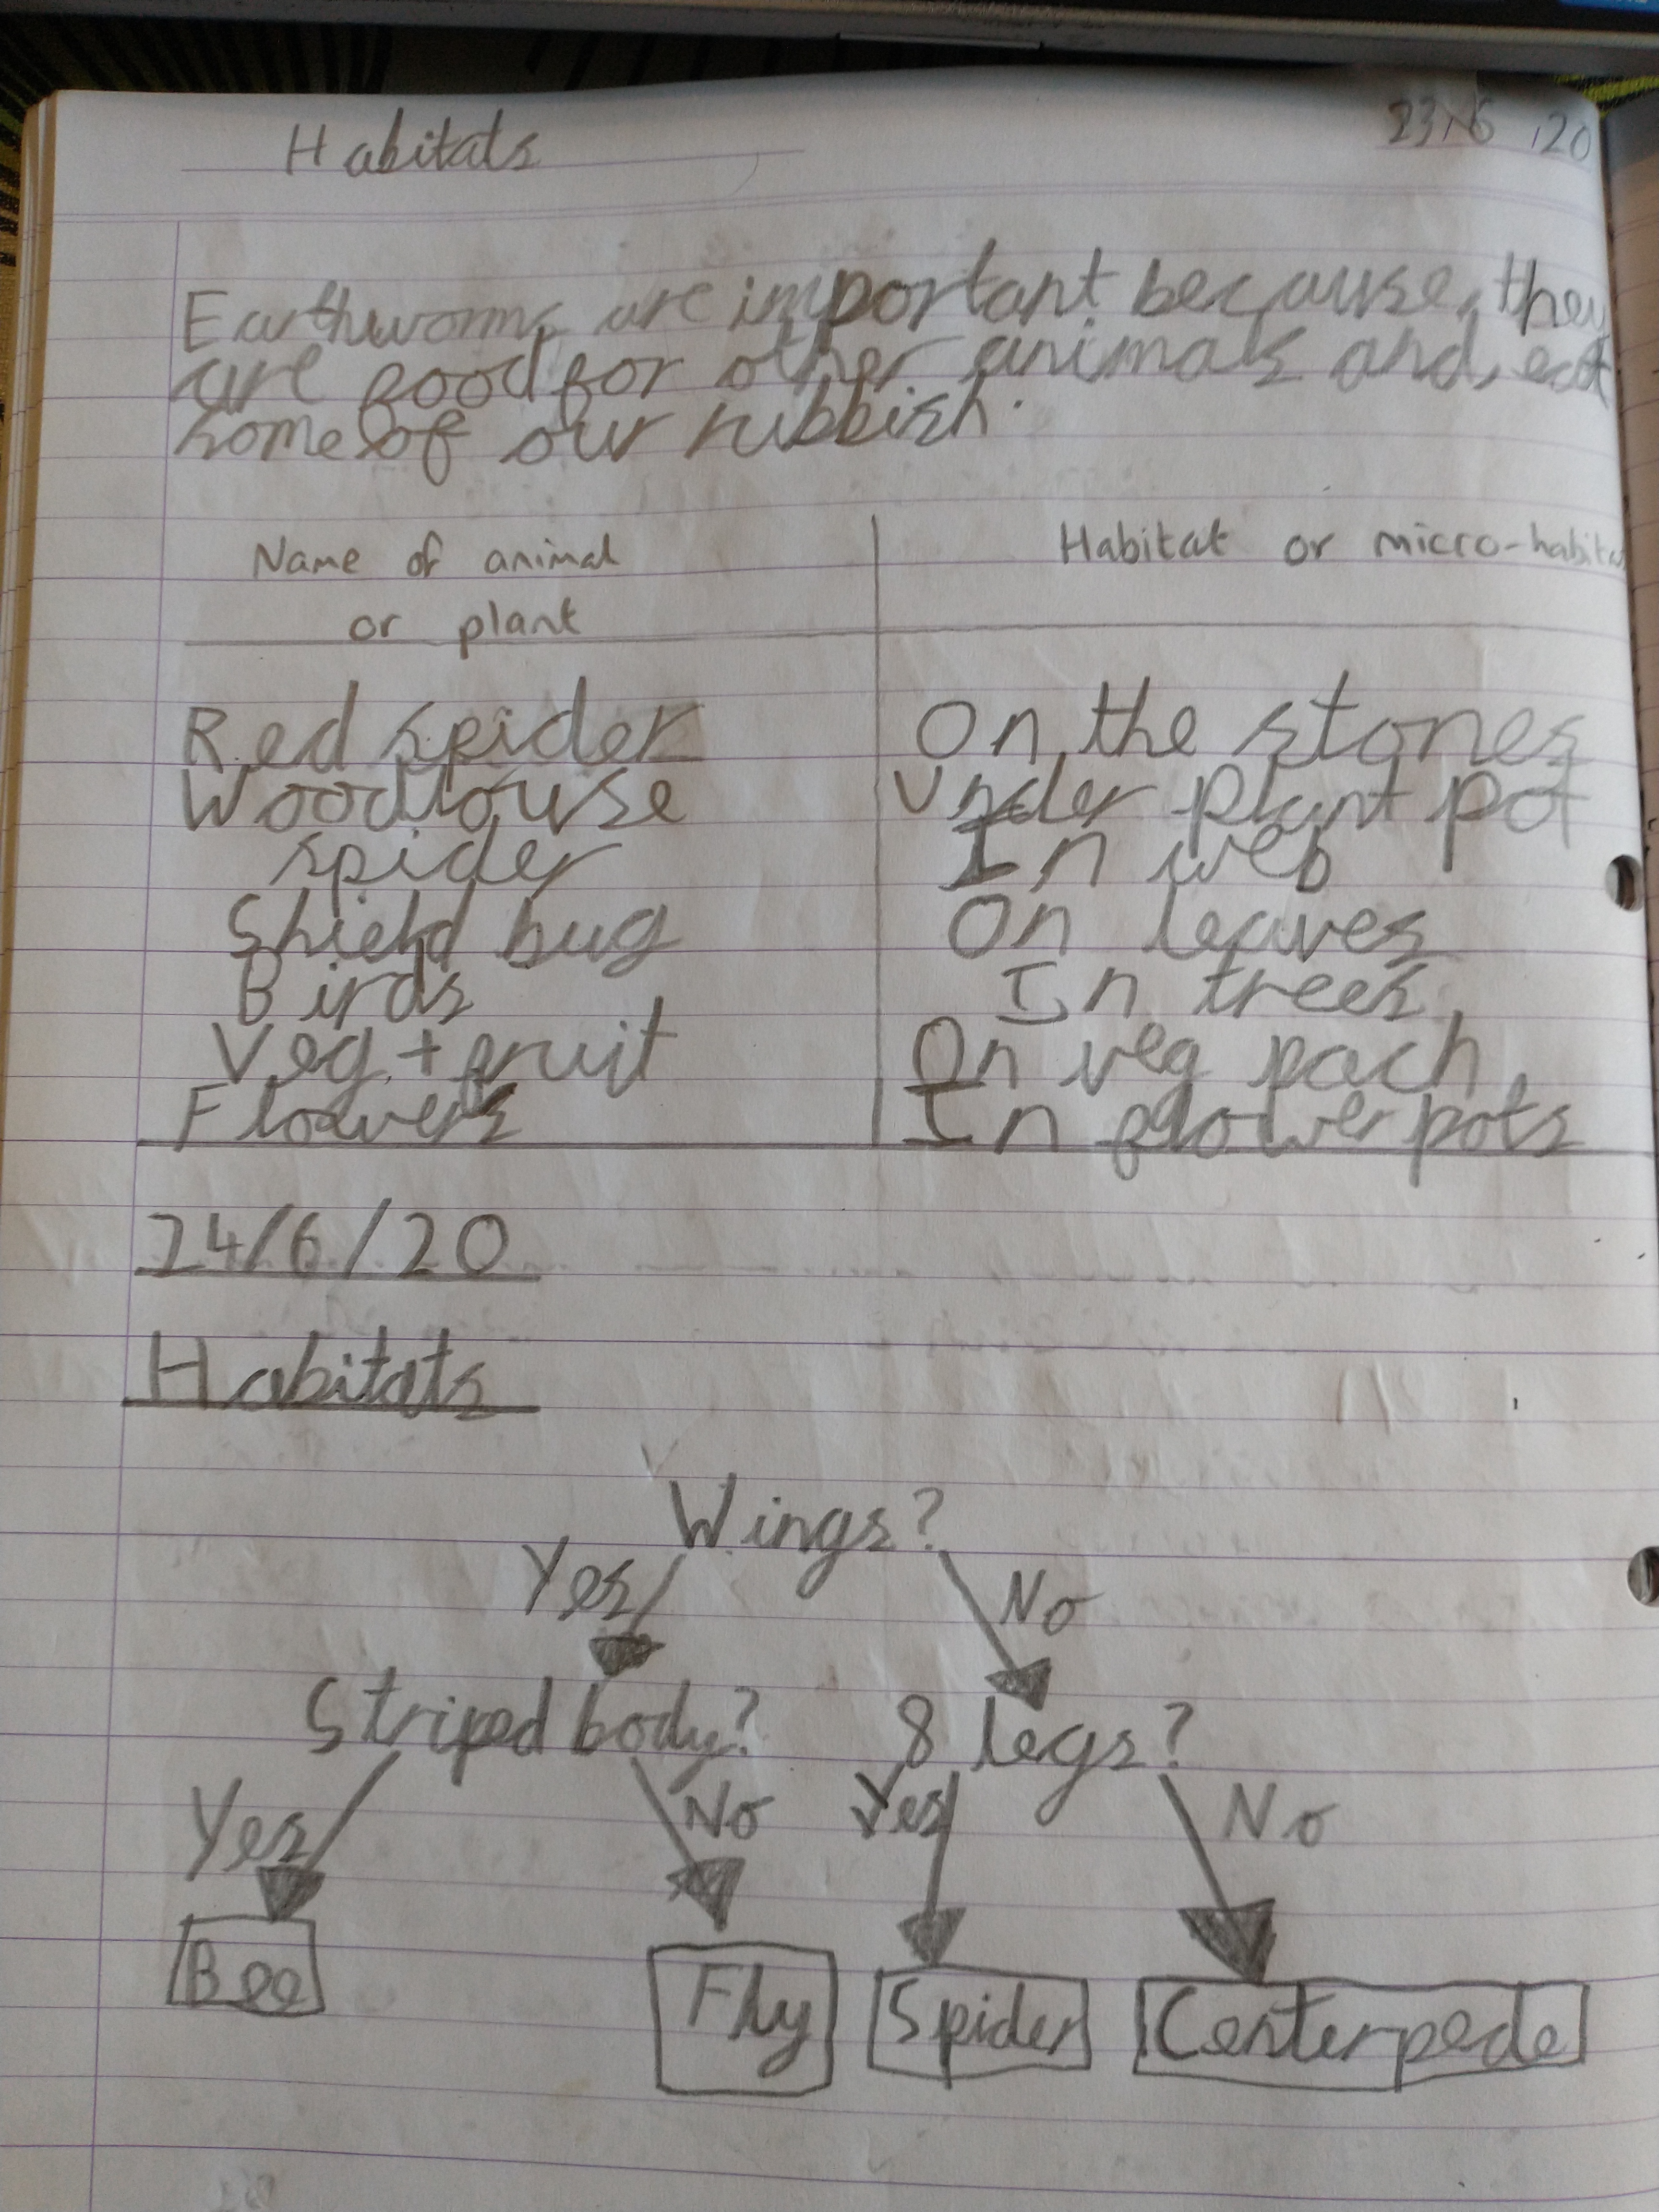 Habitats 23.6.20
Earthworms are important because, they
are good for other animals and, eat
some of our rubbish.
Name of animal Habitat or micro-habita
or plant
Red spider On the stones
Woodlouse Under plant pot
spider In web
Shield bug On leaves
Birds In trees
Veg + fruit On veg pach
Flowers In flower pots
24/6/20
Habitats
Wings?
Yes No
Striped body? 8 legs?
Yes No Yes No
Bee Fly Spider Centerpede